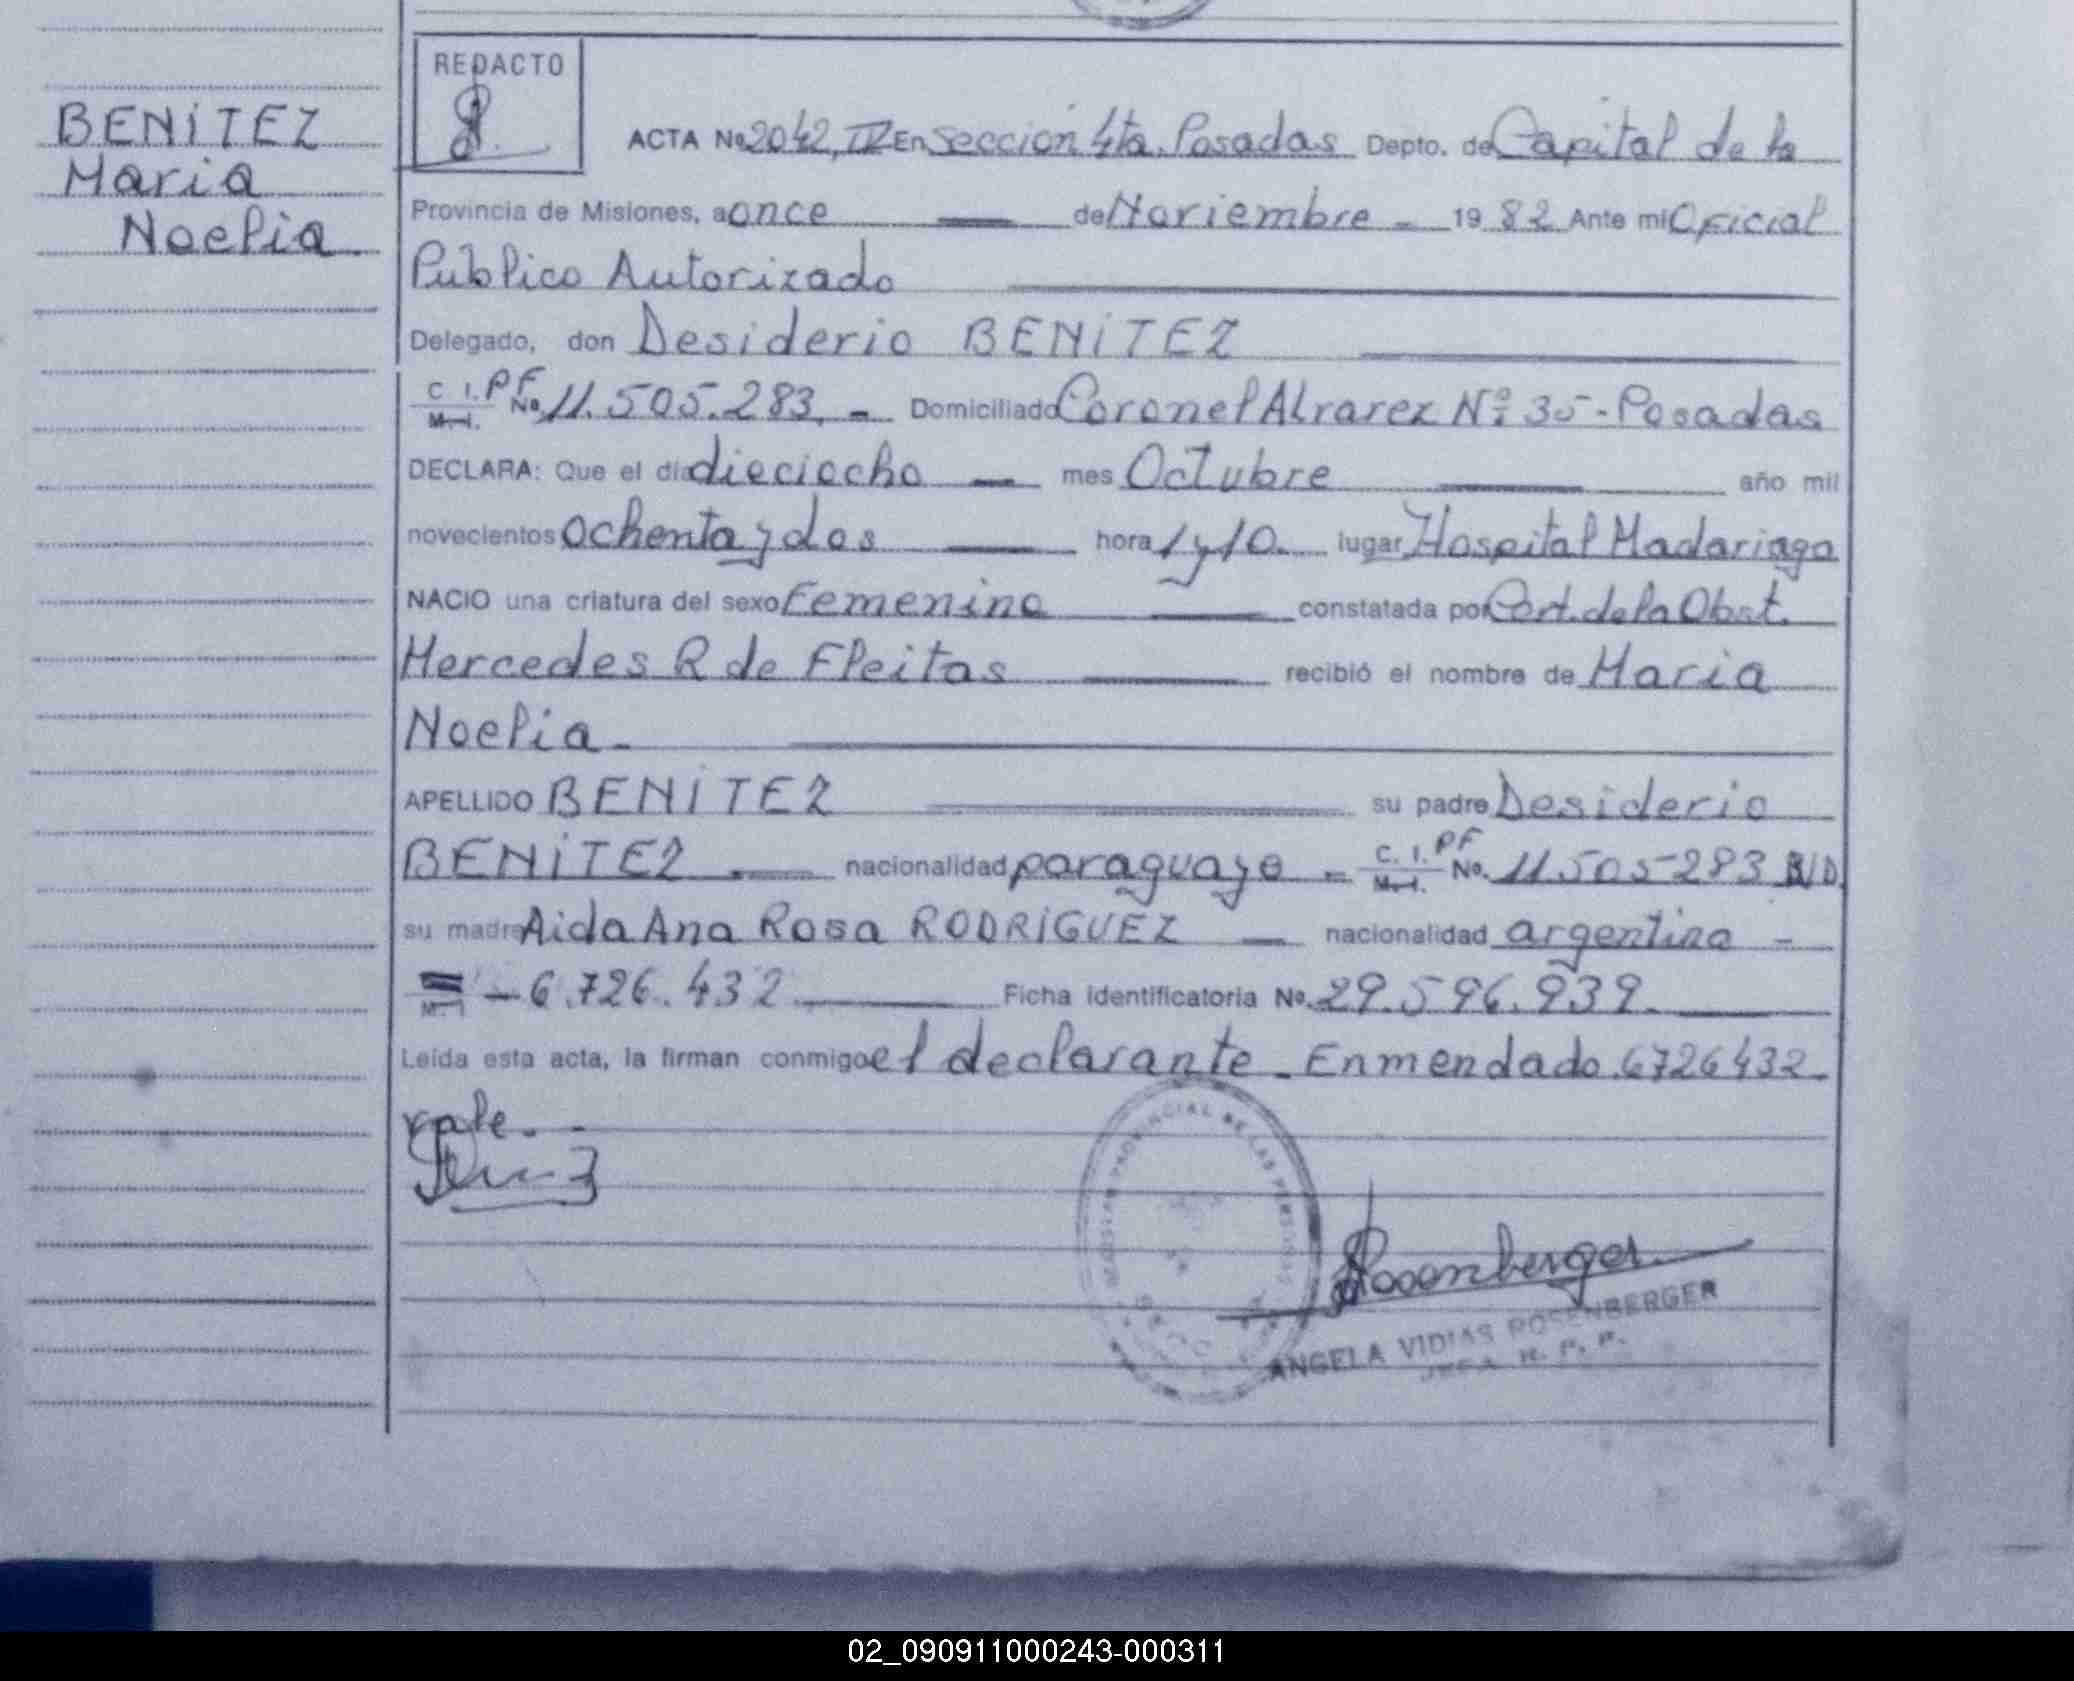 BENITEZ
Maria
Noelia.
REDACTO
ACTA No 2042, IV En Sección 4ta. Posadas Depto. de Capital de la
Provincia de Misiones, a once de Noviembre - 1982 Ante mi Oficial
Publico Autorizado
Delegado, don Desiderio BENITEZ
C. I. PF
M. I. No. 11.505.283. - Domiciliado Coronel Alvarez Nº 35 - Posadas
DECLARA: Que el dia dieciocho mes Octubre año mil
novecientos ochenta y dos hora 1 y 10. lugar Hospital Madariaga
NACIO una criatura del sexo Femenino constatada por Cert. de la Obst.
Mercedes R de Fleitas recibió el nombre de Maria
Noelia -
APELLIDO BENITEZ su padre Desiderio
BENITEZ nacionalidad paraguayo - C. I. PF M. I. No. 11.505-283
su madre Aida Ana Rosa RODRIGUEZ nacionalidad argentina -
M. I - 6.726.432 Ficha identificatoria No. 29.596.939.
Leída esta acta, la firman conmigo el declarante - Enmendado. 6726432.
vale. -
REGISTRO PROVINCIAL DE LAS PERSONAS
Rosenberger
ANGELA VIDIAS ROSENBERGER
JEFA R. P. P.
02_090911000243-000311